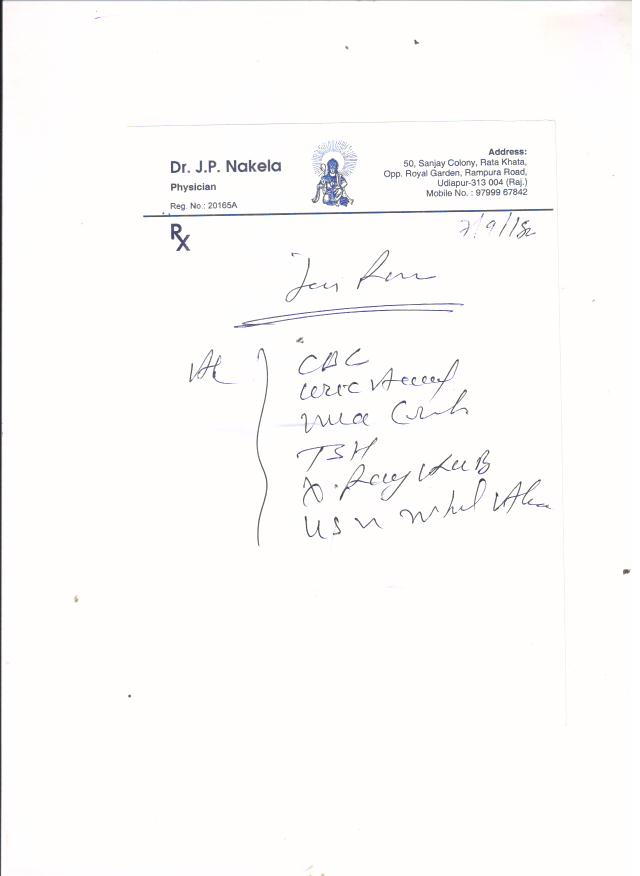 Dr. J.P. Nakela
Physician
Reg. No.: 20165A
Address:
50, Sanjay Colony, Rata Khata,
Opp. Royal Garden, Rampura Road,
Udiapur-313 004 (Raj.)
Mobile No. : 97999 67842
Rx
7/9/18
CBC
Uric
TSH
X. Ray KUB
US